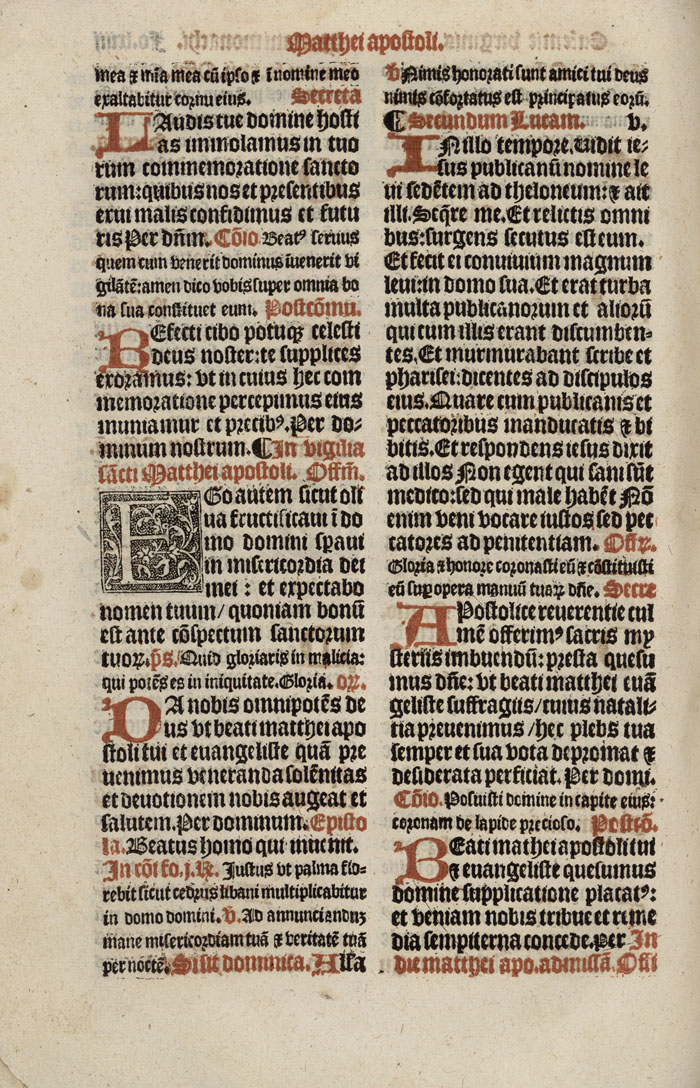 Matthei apostoli.
mea ⁊ mīa mea cū ipso ⁊ ī nomine meo
exaltabitur cornu eius. Secreta
LAudis tue domine hosti
as immolamus in tuo
rum commemoratione sancto
rum: quibus nos et presentibus
exui malis confidimus et futu
ris Per dn̄m. Cōio. Beatꝰ seruus
quem cum venerit dominus īuenerit vi
gilātē: amen dico vobis super omnia bo
na sua constituet eum. Postcōmu.
REfecti cibo potuqꝫ celesti
deus noster: te supplices
exoramus: vt in cuius hec com
memoratione percepimus eius
muniamur et precibꝰ. Per do-
minum nostrum. ¶In vigilia
sācti Matthei apostoli. Offm̄.
EGo autem sicut oli
ua fructificaui ī do
mo domini sꝑaui
in misericordia dei
mei: et expectabo
nomen tuum/ quoniam bonū
est ante cōspectum sanctorum
tuoꝝ. p̄s. Quid gloriaris in malicia:
qui potēs es in iniquitate. Gloria. oꝛ.
DA nobis omnipotēs de
us vt beati matthei apo
stoli tui et euangeliste quā pre
uenimus veneranda solēnitas
et deuotionem nobis augeat et
salutem. Per dominum. Episto
la. Beatus homo qui inuenit.
In cōi fo. j. ℟. Justus vt palma flo-
rebit sicut cedrus libani multiplicabitur
in domo domini. ℣. Ad annunciandūꝫ
mane misericordiam tuā ⁊ veritatē tuā
per noctē. Si sit dominica. Alla
℣ Nimis honorati sunt amici tui deus
nimis cōfortatus est principatus eoꝝ.
¶Secundum Lucam. v.
IN illo tempore. Uidit ie-
sus publicanū nomine le
ui sedētem ad theloneum: ⁊ ait
illi. Seq̄re me. Et relictis omni
bus: surgens secutus est eum.
Et fecit ei conuiuium magnum
leui: in domo sua. Et erat turba
multa publicanorum et aliorū
qui cum illis erant discumben-
tes. Et murmurabant scribe et
pharisei: dicentes ad discipulos
eius. Quare cum publicanis et
peccatoribus manducatis ⁊ bi
bitis. Et respondens iesus dixit
ad illos Non egent qui sani sūt
medico: sed qui male habēt Nō
enim veni vocare iustos sed pec
catores ad penitentiam. Offꝝ.
Gloria ⁊ honore coronasti eū ⁊ cōstituisti
eū suꝑ opera manuū tuaꝝ dn̄e. Secre
APostolice reuerentie cul
mē offerimꝰ sacris my
steriis imbuendū: presta quesu
mus dn̄e: vt beati matthei euā
geliste suffragiis/ cuius natali-
tia preuenimus/ hec plebs tua
semper et sua vota depromat ⁊
desiderata perficiat. Per domi.
Cōio. Posuisti domine in capite eius:
coronam de lapide precioso. Postcō.
BEati mathei apostoli tui
⁊ euangeliste quesumus
domine supplicatione placatꝰ:
et veniam nobis tribue et reme
dia sempiterna concede. Per In
die matthei apo. ad missā. Offi